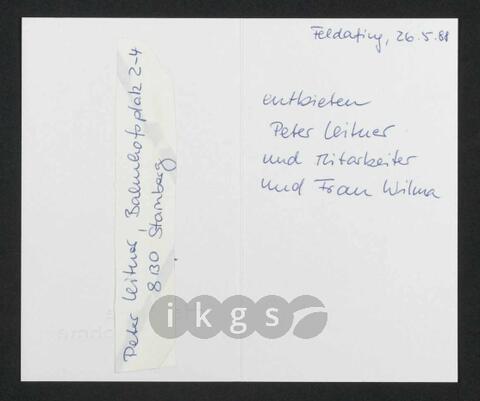 Feldafing, 26.5.88
entbieten
Peter Leitner
und Mitarbeiter
und Frau Wilma
Peter Leitner, Bahnhofsplatz 2-4
8130 Starnberg
ikgs